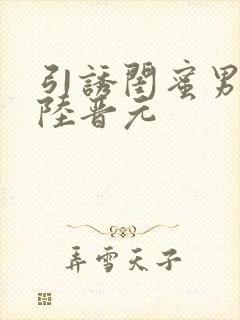 引誘閨蜜男
陸晋元
弄雪天子